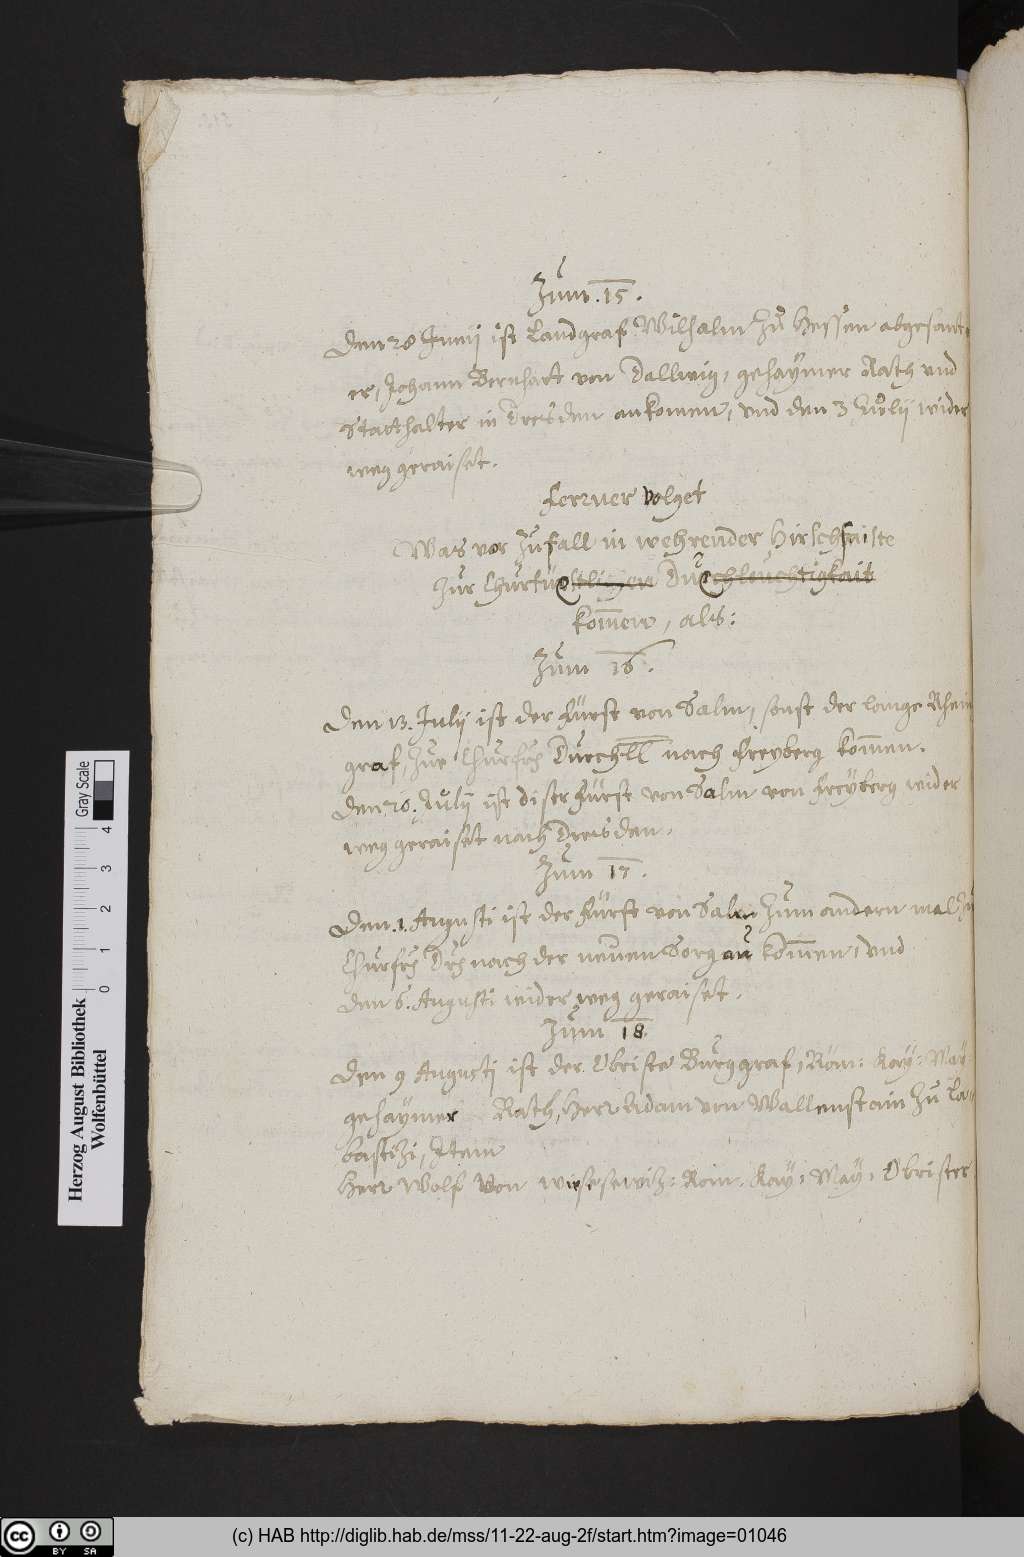 Zum .15.
Den 28 Junij ist Landgraf Wilhalm zu Hessen abgesant
er, Johann Bernhart von Dallwig, gehaymer Rath vnd
Statthalter in Dresden ankomen, vnd den 3 Julij wider
weg geraiset.
Ferner volget
Was vor Zufall in wehrender Hirschfaiste
Zur Churfürstlichen Durchleuchtigkait
kommen, als:
Zum 16.
Den 13. Julij ist der Fürst von Salm, sonst der lange Rhein
graf, Zur Churfrs Durchll nach Freyberg kommen.
den 26. Julij ist diser Fürst von Salm von Freyberg wider
weg geraiset nach Dresden.
Zum 17.
Den .1. Augusti ist der Fürst von Salm Zum andern mal Zu
Churfrs Drs nach der neuen Sorgau kommen, vnd
den 6. Augusti wider weg geraiset.
Zum 18.
Den 9 Augustij ist der Obriste Burggraf, Röm: Kay: May
gehaymer Rath, Herr Adam von Wallenstain Zu
Item
Herr Wolf Von Röm. Kay: May: Obrister
Herzog August Bibliothek
Wolfenbüttel
0 1 2 3 4
Gray Scale
cc BY SA
(c) HAB http://diglib.hab.de/mss/11-22-aug-2f/start.htm?image=01046